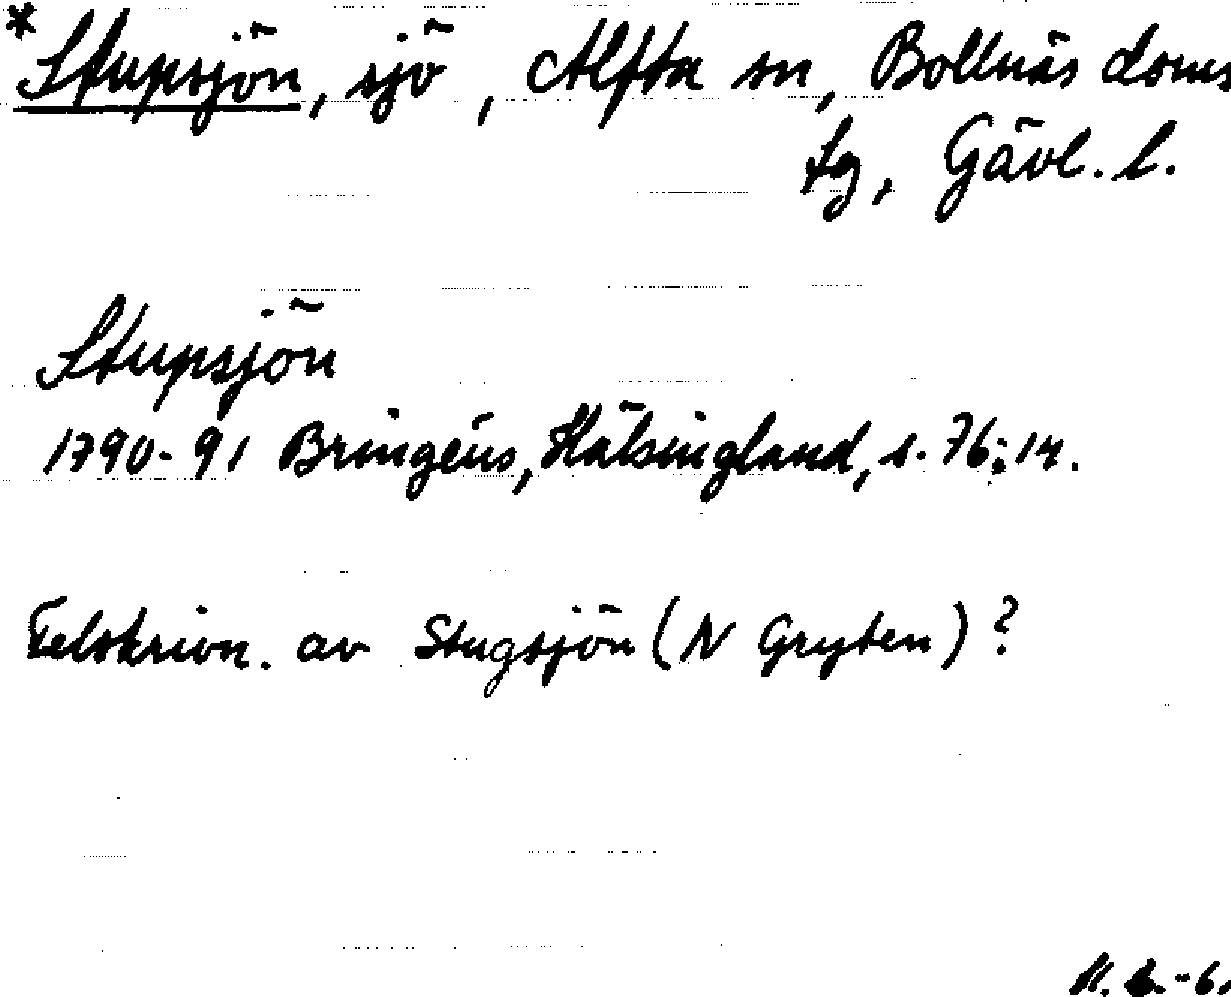 *Stupsjön, sjö, Alfta sn, Bollnäs doms
lg, Gävl. l.
Stupsjön
1790-91 Bringéus, Hälsingland, s. 76; 14.
Felskrivn. av Stugsjön (N Gryten)?